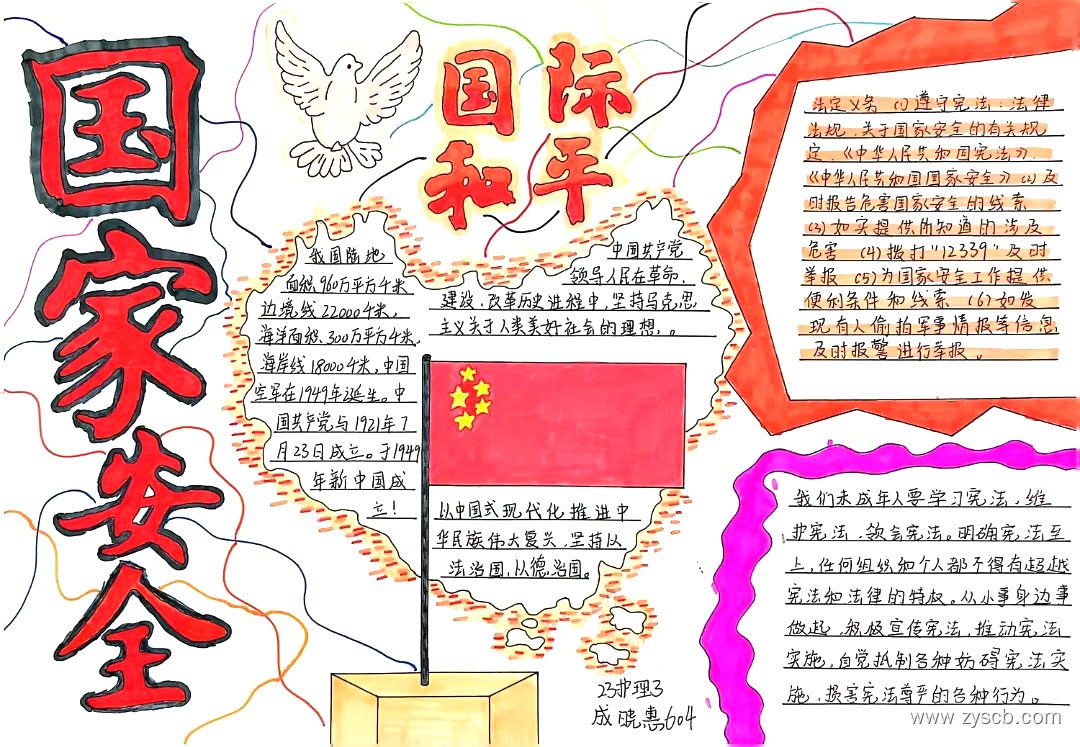 国家安全
国际
和平
我国陆地
面积960万平方千米
边境线22000千米，
海洋面积、300万平方千米，
海岸线18000千米，中国
空军在1949年诞生。中
国共产党与1921年7
月23日成立。于1949
年新中国成
立！
中国共产党
领导人民在革命、
建设、改革历史进程中，坚持马克思
主义关于人类美好社会的理想，。
以中国式现代化推进中
华民族伟大复兴、坚持以
法治国，以德治国。
法定义务 (1)遵守宪法：法律
法规、关于国家安全的有关规
定、《中华人民共和国宪法》、
《中华人民共和国国家安全》(2)及
时报告危害国家安全的线索
(3)如实提供所知道的涉及
危害 (4)拨打“12339”及时
举报 (5)为国家安全工作提供
便利条件和线索 (6)如发
现有人偷拍军事情报等信息
及时报警进行举报。
我们未成年人要学习宪法，维
护宪法、敬会宪法。明确宪法至
上，任何组织和个人都不得有超越
宪法和法律的特权。从小事身边事
做起，积极宣传宪法，推动宪法
实施，自觉抵制各种妨碍宪法实
施、损害宪法尊严的各种行为。
23护理3
成晓惠604
www.zyscb.com